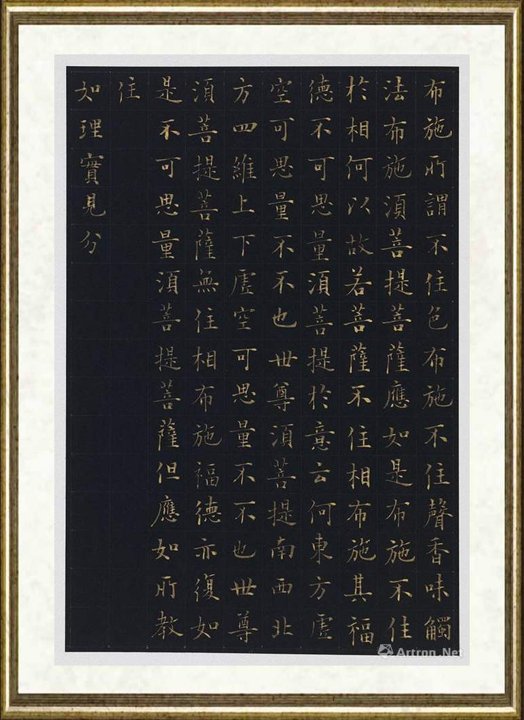 布施所謂不住色布施不住聲香味觸
法布施須菩提菩薩應如是布施不住
於相何以故若菩薩不住相布施其福
德不可思量須菩提於意云何東方虛
空可思量不不也世尊須菩提南西北
方四維上下虛空可思量不不也世尊
須菩提菩薩無住相布施福德亦復如
是不可思量須菩提菩薩但應如所教
住
如理實見分
Artron.Net